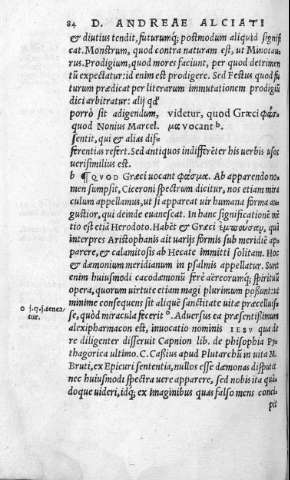 84 D. ANDREAE ALCIATI
& diutius tendit, futurumq; postmodum aliquid signifi
cat. Monstrum, quod contra naturam est, ut Minotau
rus. Prodigium, quod mores faciunt, per quod detrimen
tũ expectatur: id enim est prodigere. Sed Festus quod fu
turum prædicat per literarum immutationem prodigiũ
dici arbitratur: alij qđ
porrò sit adigendum,
quod Nonius Marcel.
sentit, qui & alias dif
videtur, quod Græci φάσ
μα vocant b.
ferentias refert. Sed antiquos indifferẽter his uerbis usos
uerisimilius est.
b ¶ QVOD Græci uocant φάσμα. Ab apparendo no
men sumpsit, Ciceroni spectrum dicitur, nos etiam mira
culum appellamus, ut si appareat uir humana forma au
gustior, qui deinde euanescat. In hanc significationẽ mẽ
tio est etiã Herodoto. Habẽt & Græci ἔμπουσαν, quã
interpres Aristophanis ait uarijs formis sub meridiẽ ap
parere, & calamitosis ab Hecate immitti solitam. Hoc
& dæmonium meridianum in psalmis appellatur. Sunt
enim huiusmodi cacodæmonũ ferè aëreorumq; spirituũ
opera, quorum uirtute etiam magi plurimum possunt: ut
minimè consequens sit aliquẽ sanctitate uitæ præcelluis
se, quòd miracula fecerit o. Aduersus ea præsentissimum
alexipharmacon est, inuocatio nominis IESV qua di
re diligenter disseruit Capnion lib. de phisophia Py-
thagorica ultimo. C. Cassius apud Plutarchũ in uita M.
Bruti, ex Epicuri sententia, nullos esse dæmonas disputa
nec huiusmodi spectra uere apparere, sed nobis ita qui
doque uideri, idq; ex imaginibus quas falso mens conci
pit